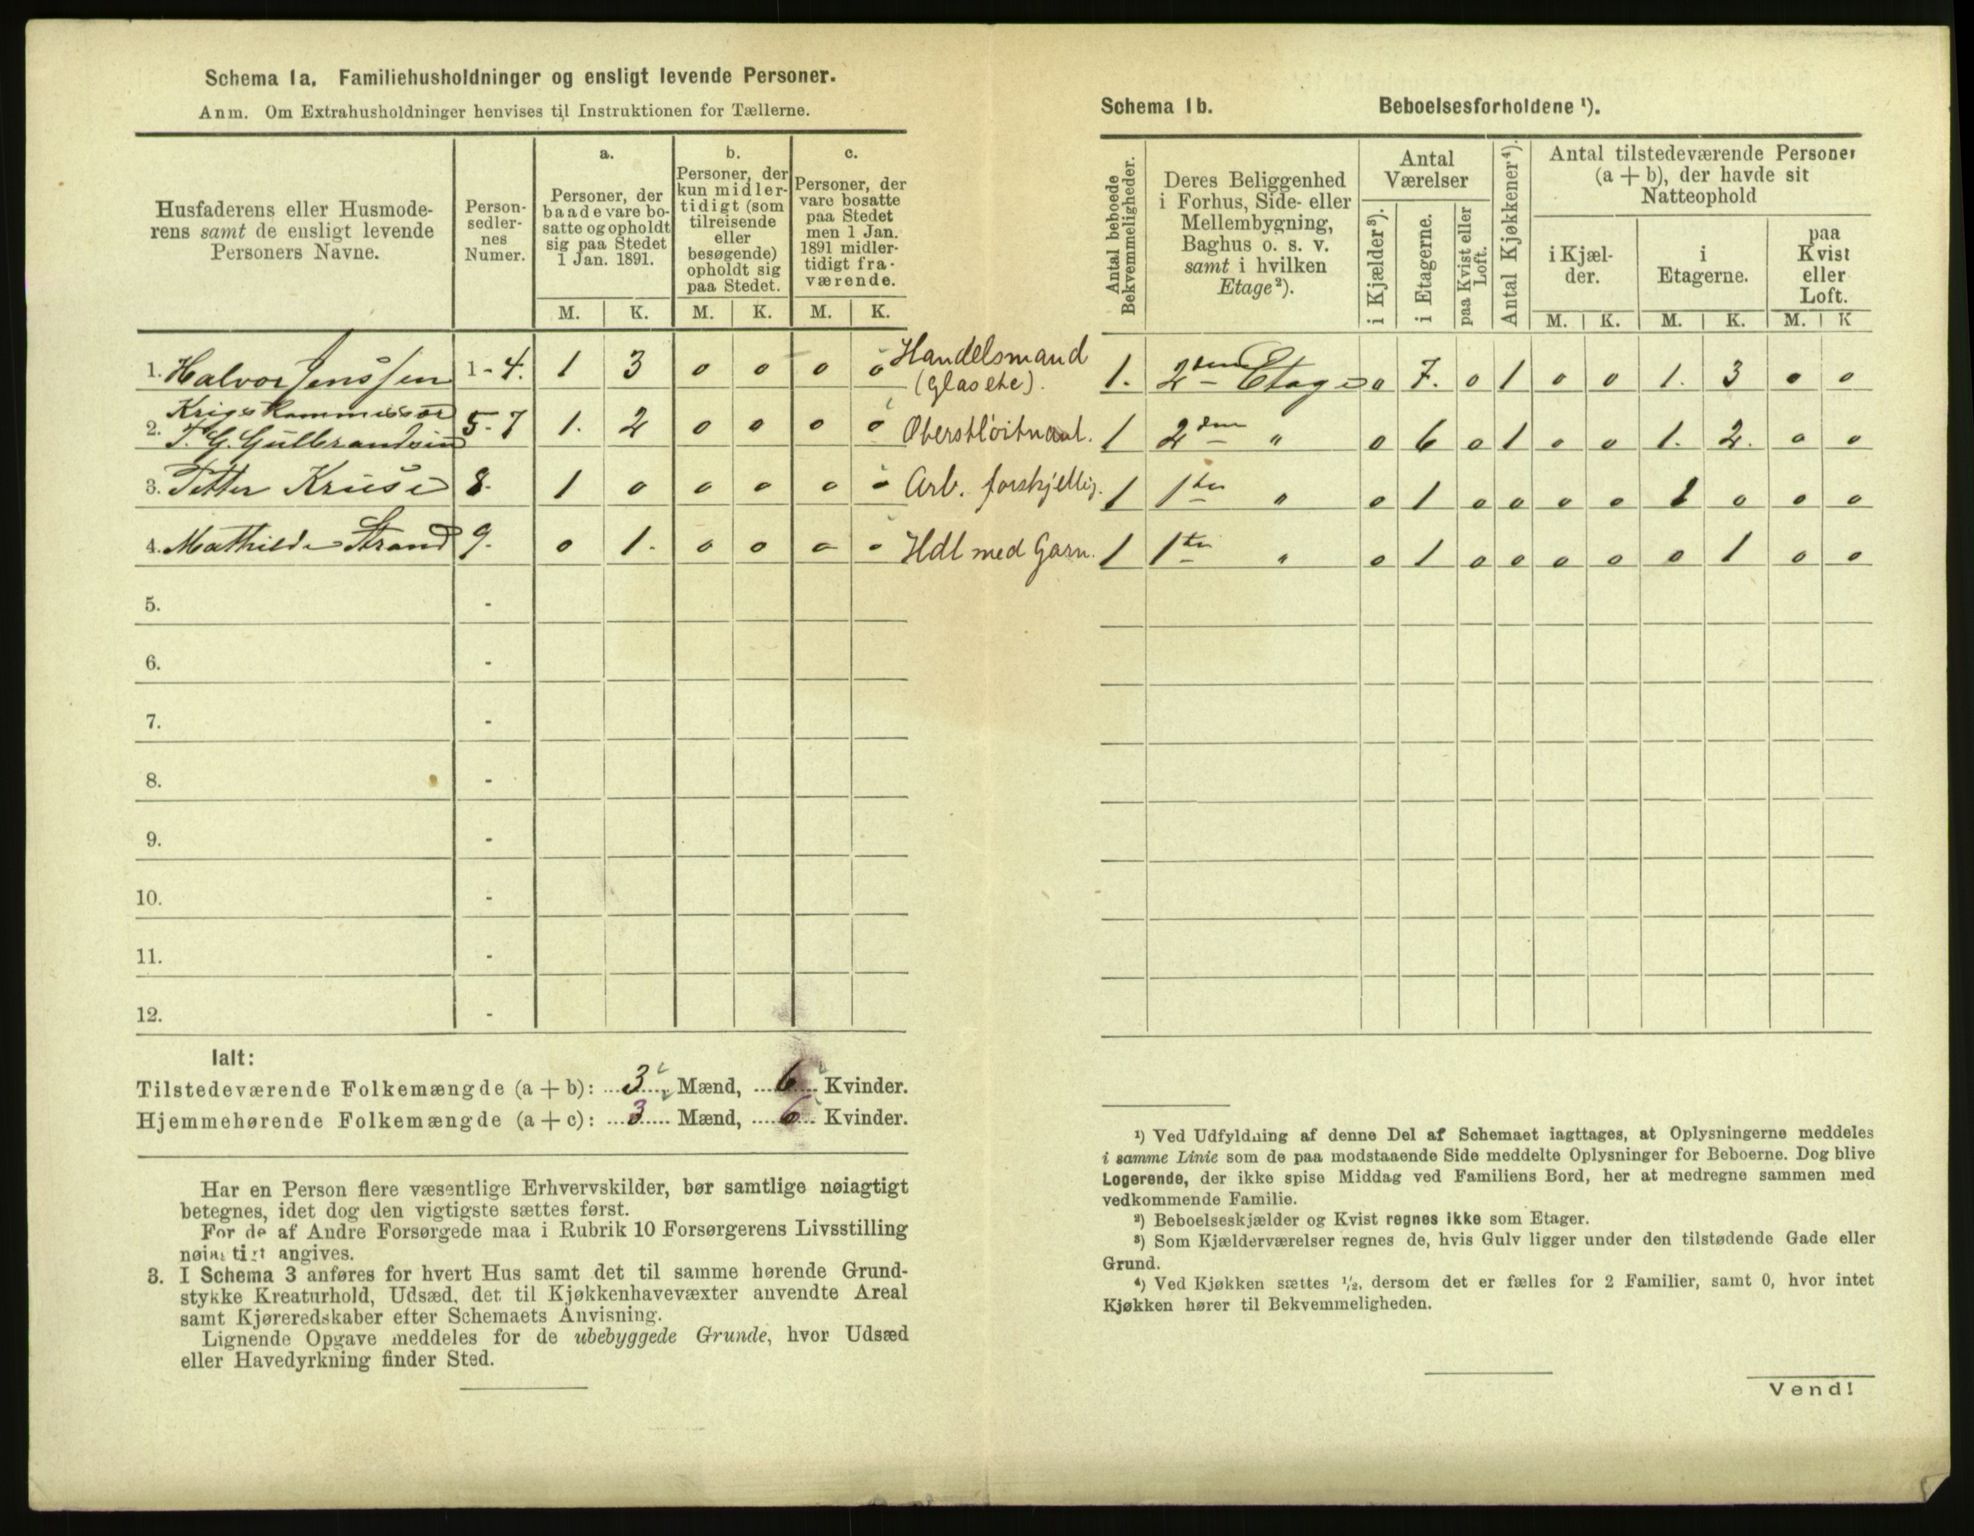 Schema 1a. Familiehusholdninger og ensligt levende Personer.
Anm. Om Extrahusholdninger henvises til Instruktionen for Tællerne.
Husfaderens eller Husmode-
rens samt de ensligt levende
Personers Navne.
Person-
sedler-
nes
Numer.
a.
Personer, der
baade vare bo-
satte og opholdt
sig paa Stedet
1 Jan. 1891.
b.
Personer, der
kun midler-
tidigt (som
tilreisende
eller
besøgende)
opholdt sig
paa Stedet.
c.
Personer, der
vare bosatte
paa Stedet
men 1 Jan.
1891 midler-
tidigt fra-
værende.
M. K. M. K. M. K.
1. Halvor Jenssen 1-4. 1 3 0 0 0 0 Handelsmand
(Glas etc).
2. Krigskommissær
T. G. Gulbrandsen 5-7 1. 2 0 0 0 0 Oberstløitnant.
3. Petter Kruse 8. 1 0 0 0 0 0 Arb. forskjellig.
4. Mathilde Strand 9. 0 1. 0 0 0 0 Hdl med Garn.
5. -
6. -
7. -
8. -
9. -
10. -
11. -
12. -
Ialt:
Tilstedeværende Folkemængde (a + b): 3 Mænd, 6 Kvinder.
Hjemmehørende Folkemængde (a + c): 3 Mænd, 6 Kvinder.
Har en Person flere væsentlige Erhvervskilder, bør samtlige nøiagtigt
betegnes, idet dog den vigtigste sættes først.
For de af Andre Forsørgede maa i Rubrik 10 Forsørgerens Livsstilling
nøiagtigt angives.
3. I Schema 3 anføres for hvert Hus samt det til samme hørende Grund-
stykke Kreaturhold, Udsæd, det til Kjøkkenhavevæxter anvendte Areal
samt Kjøreredskaber efter Schemaets Anvisning.
Lignende Opgave meddeles for de ubebyggede Grunde, hvor Udsæd
eller Havedyrkning finder Sted.
Schema 1b. Beboelsesforholdene ¹).
Antal beboede
Bekvemmeligheder.
Deres Beliggenhed
i Forhus, Side- eller
Mellembygning,
Baghus o. s. v.
samt i hvilken
Etage²).
Antal
Værelser
i Kjælder³).
i Etagerne.
paa Kvist eller
Loft.
Antal Kjøkkener⁴).
Antal tilstedeværende Personer
(a + b), der havde sit
Natteophold
i Kjæl-
der.
i
Etagerne.
paa
Kvist
eller
Loft.
M. K. M. K. M. K
1. 2den Etage 0 7. 0 1 0 0 1. 3 0 0
1 2den " 0 6 0 1 0 0 1. 2. 0 0
1 1ste " 0 1 0 0 0 0 1 0 0 0
1 1ste " 0 1 0 0 0 0 0 1 0 0
¹) Ved Udfyldning af denne Del af Schemaet iagttages, at Oplysningerne meddeles
i samme Linie som de paa modstaaende Side meddelte Oplysninger for Beboerne. Dog blive
Logerende, der ikke spise Middag ved Familiens Bord, her at medregne sammen med
vedkommende Familie.
²) Beboelseskjælder og Kvist regnes ikke som Etager.
³) Som Kjælderværelser regnes de, hvis Gulv ligger under den tilstødende Gade eller
Grund.
⁴) Ved Kjøkken sættes ½, dersom det er fælles for 2 Familier, samt 0, hvor intet
Kjøkken hører til Bekvemmeligheden.
Vend!